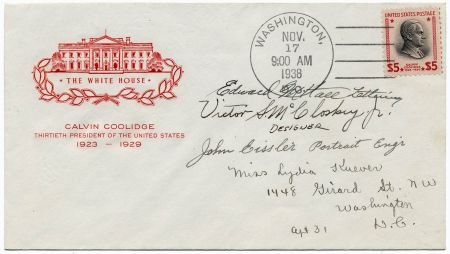 WASHINGTON,
NOV.
17
9:00 AM
1938
UNITED STATES POSTAGE
$5 $5
• THE WHITE HOUSE •
CALVIN COOLIDGE
THIRTIETH PRESIDENT OF THE UNITED STATES
1923 — 1929
Edward Hall Lettering
Victor S. McCloskey Jr.
DESIGNER
John Eissler Portrait Engr
Miss Lydia Kuever
1448 Girard St. NW
Washington
Apt 31 D.C.